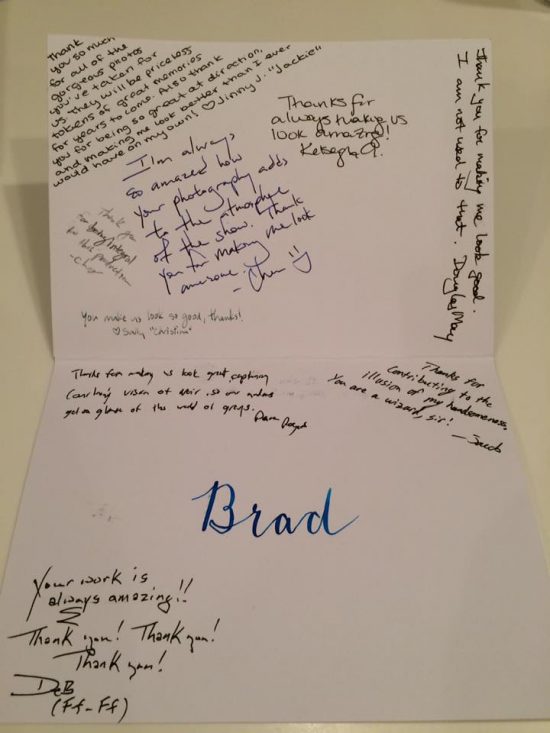 Thank
you so much
for all of the
gorgeous photos
you've taken for
us. They will be priceless
tokens of great memories
for years to come. Also thank
you for being so great at direction,
and making me look better than I ever
would have on my own! ♡ Jinny J. "Jackie"
Thanks for
always making us
look amazing!
Thank you for making me look good.
I am not used to that. Douglas May
I'm always
so amazed how
your photography adds
to the atmosphere
of the show. Thank
you for making me look
awesome.
Thank you
for being integral
to this production
You make us look so good, thanks!
"Christina"
Thanks for making us look great, capturing
vision of noir, so our audience
get a glimpse of the world of greys.
Thanks for
contributing to the
illusion of my handsomeness.
You are a wizard, sir!
Brad
Your work is
always amazing!!
Thank you! Thank you!
Thank you!
DeB
(Ff-Ff)